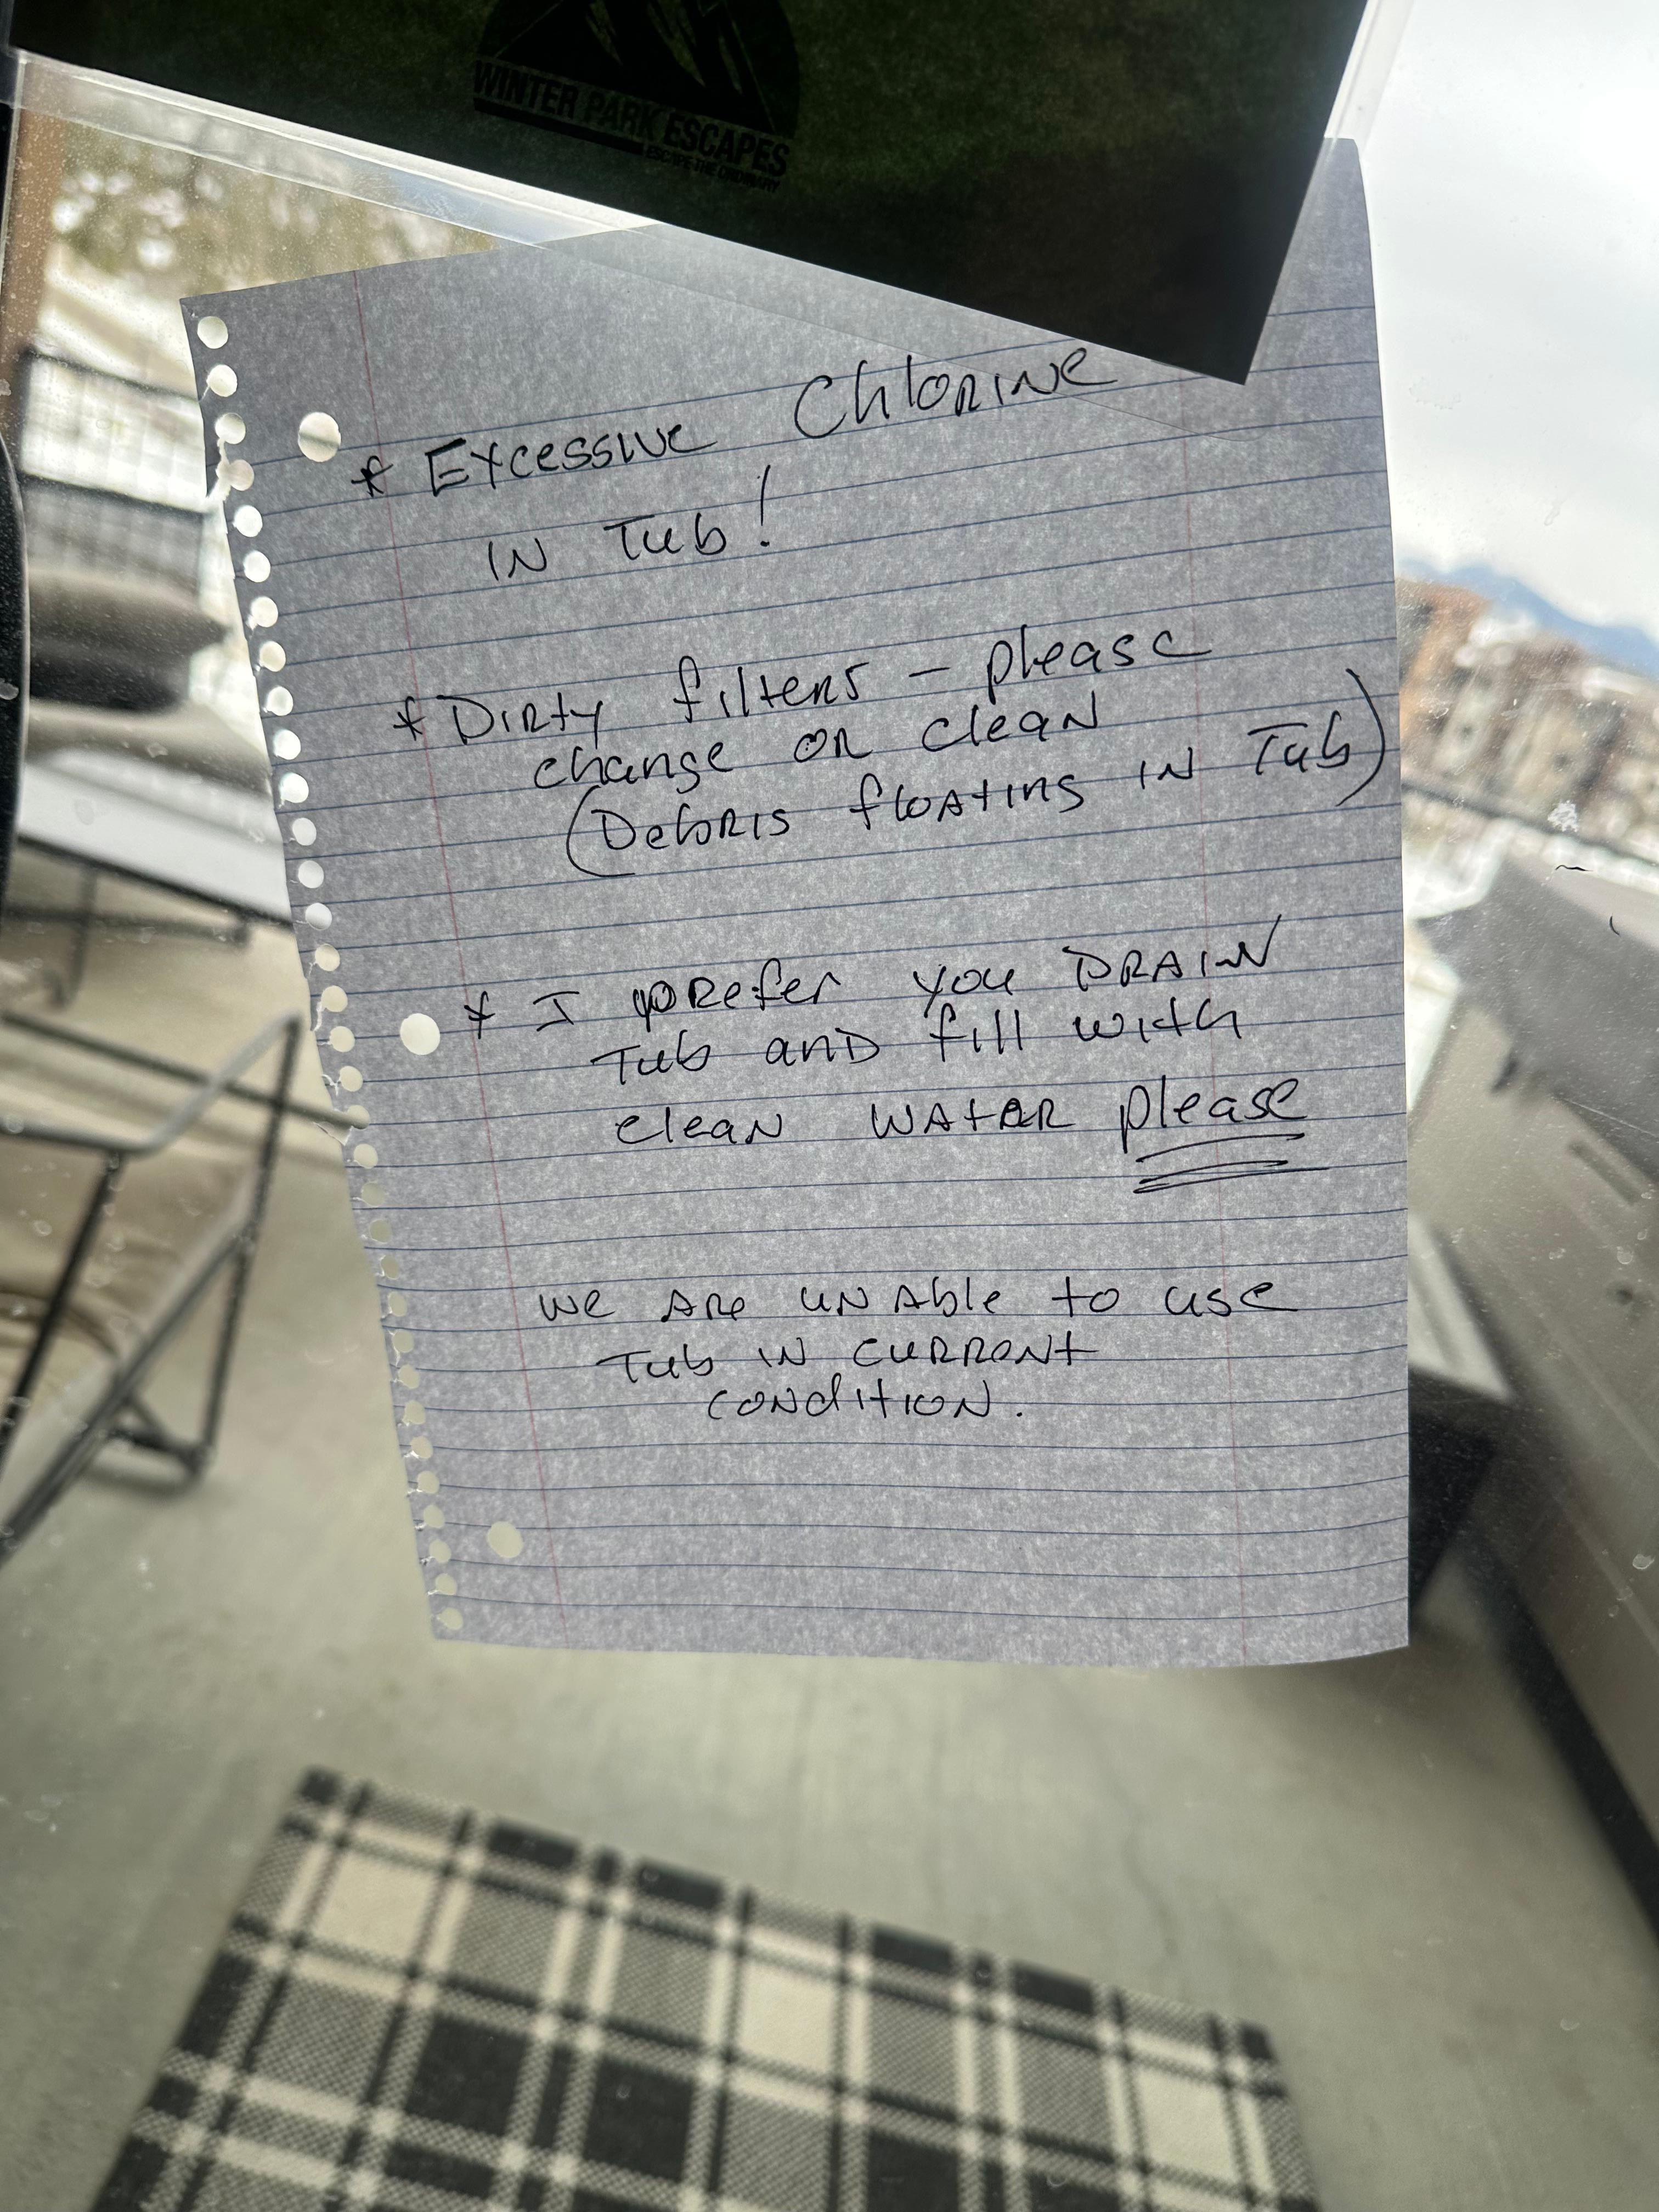 WINTER PARK ESCAPES
ESCAPE THE ORDINARY
* Excessive Chlorine
IN Tub!
* Dirty filters - please
change OR clean
(Debris floating IN Tub)
* I prefer you DRAIN
Tub and fill with
clean water please
we are unable to use
Tub IN current
condition.